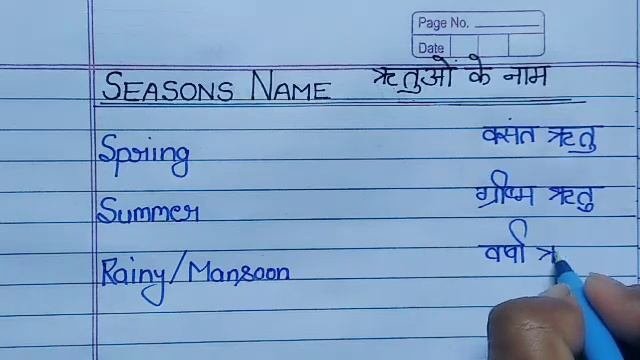 Page No.
Date
SEASONS NAME ऋतुओं के नाम
Spring वसंत ऋतु
Summer ग्रीष्म ऋतु
Rainy/Mansoon वर्षा